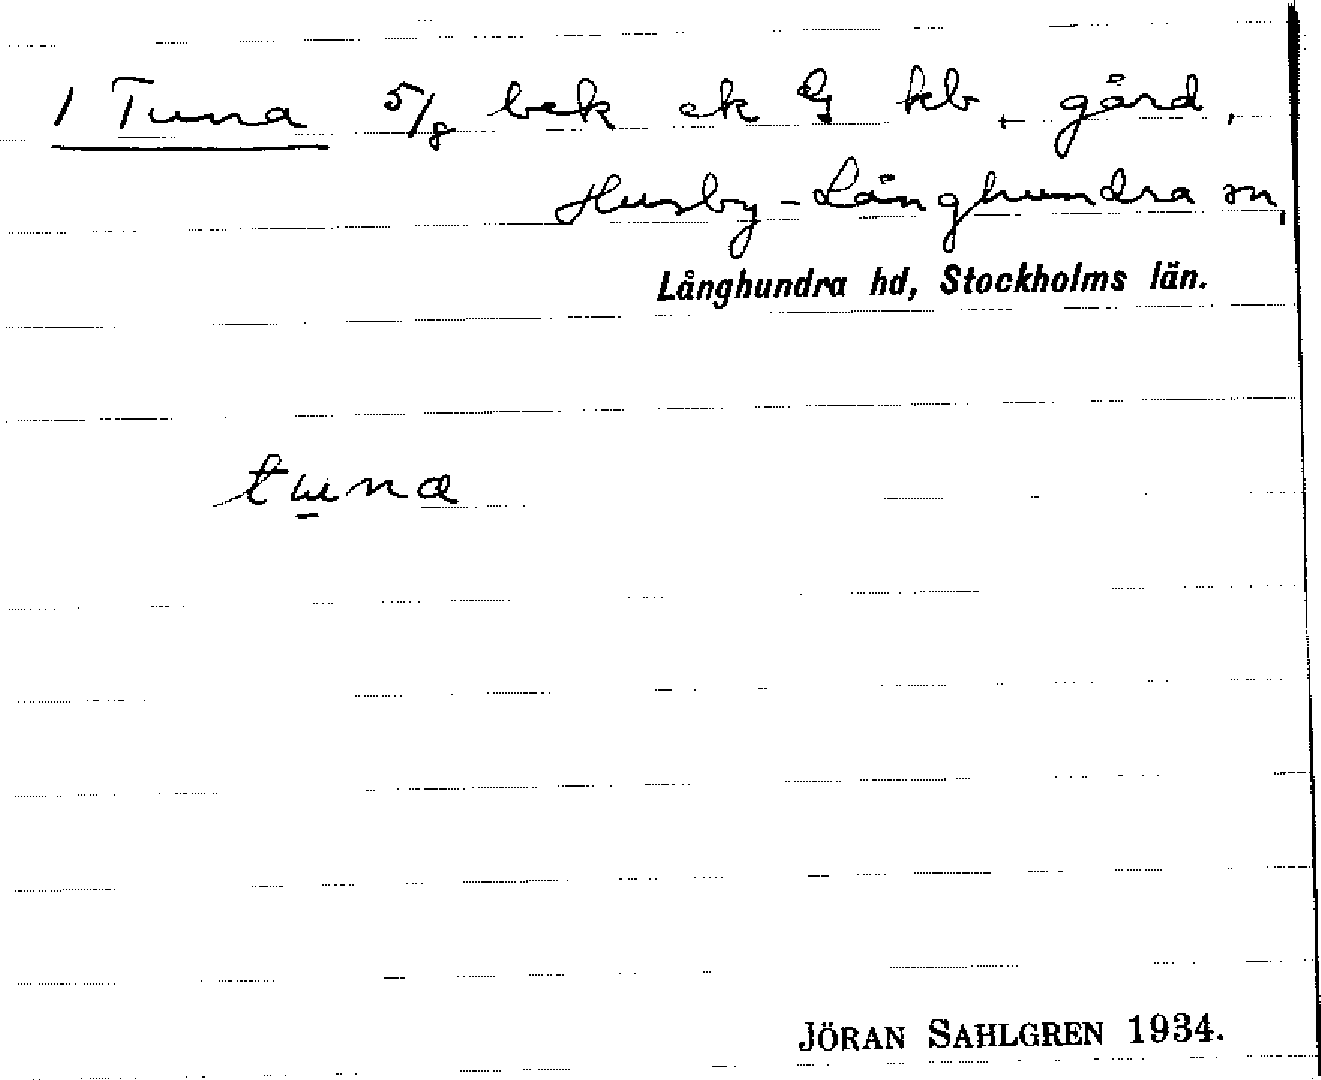 1 Tuna 5/8 bek ek G kb, gård,
Husby-Långhundra sn,
Långhundra hd, Stockholms län.
tuna
JÖRAN SAHLGREN 1934.